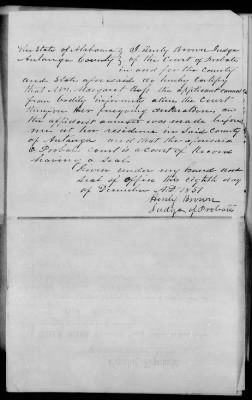 The State of Alabama } I Henly Brown Judge
Autauga County } of the Court of Probate
in and for the County
and State aforesaid do hereby certify
that Mrs Margaret the applicant cannot
from bodily infirmity attend the Court
her foregoing declaration and
the affidavit annexed was made before
me at her residence in said County
of Autauga and that the aforesaid
Probate Court is a Court of Record
having a Seal.
Given under my hand and
Seal of office this eighth day
of December A.D. 1851
Henly Brown
Judge of Probate